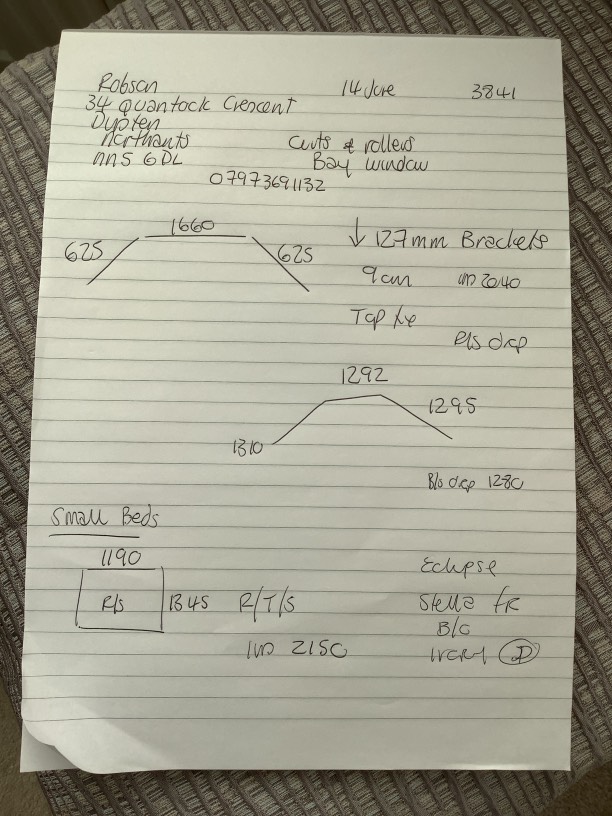 Robson 14 June 3841
34 Quantock Crescent
Duston
Northants Curts & rollers
NN5 6DL Bay window
07973691132
1660
625 625 ↓ 127mm Brackets
9cm 2040
Top fix
R/s drop
1292
1295
1310
B/s drop 1280
Small Beds
1190
R/s 1345 R/T/S
Eclipse
Stella fr
B/C
2150 Ivory D